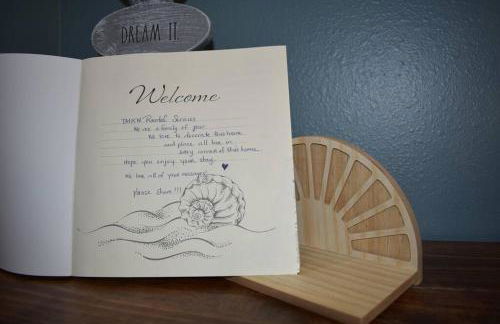 DREAM IT.
Welcome
Rental Services
We are a family of four
We love to decorate this home
and place all love in
every corner of this home.
Hope you enjoy your stay.
We love all of your messages
please share !!!